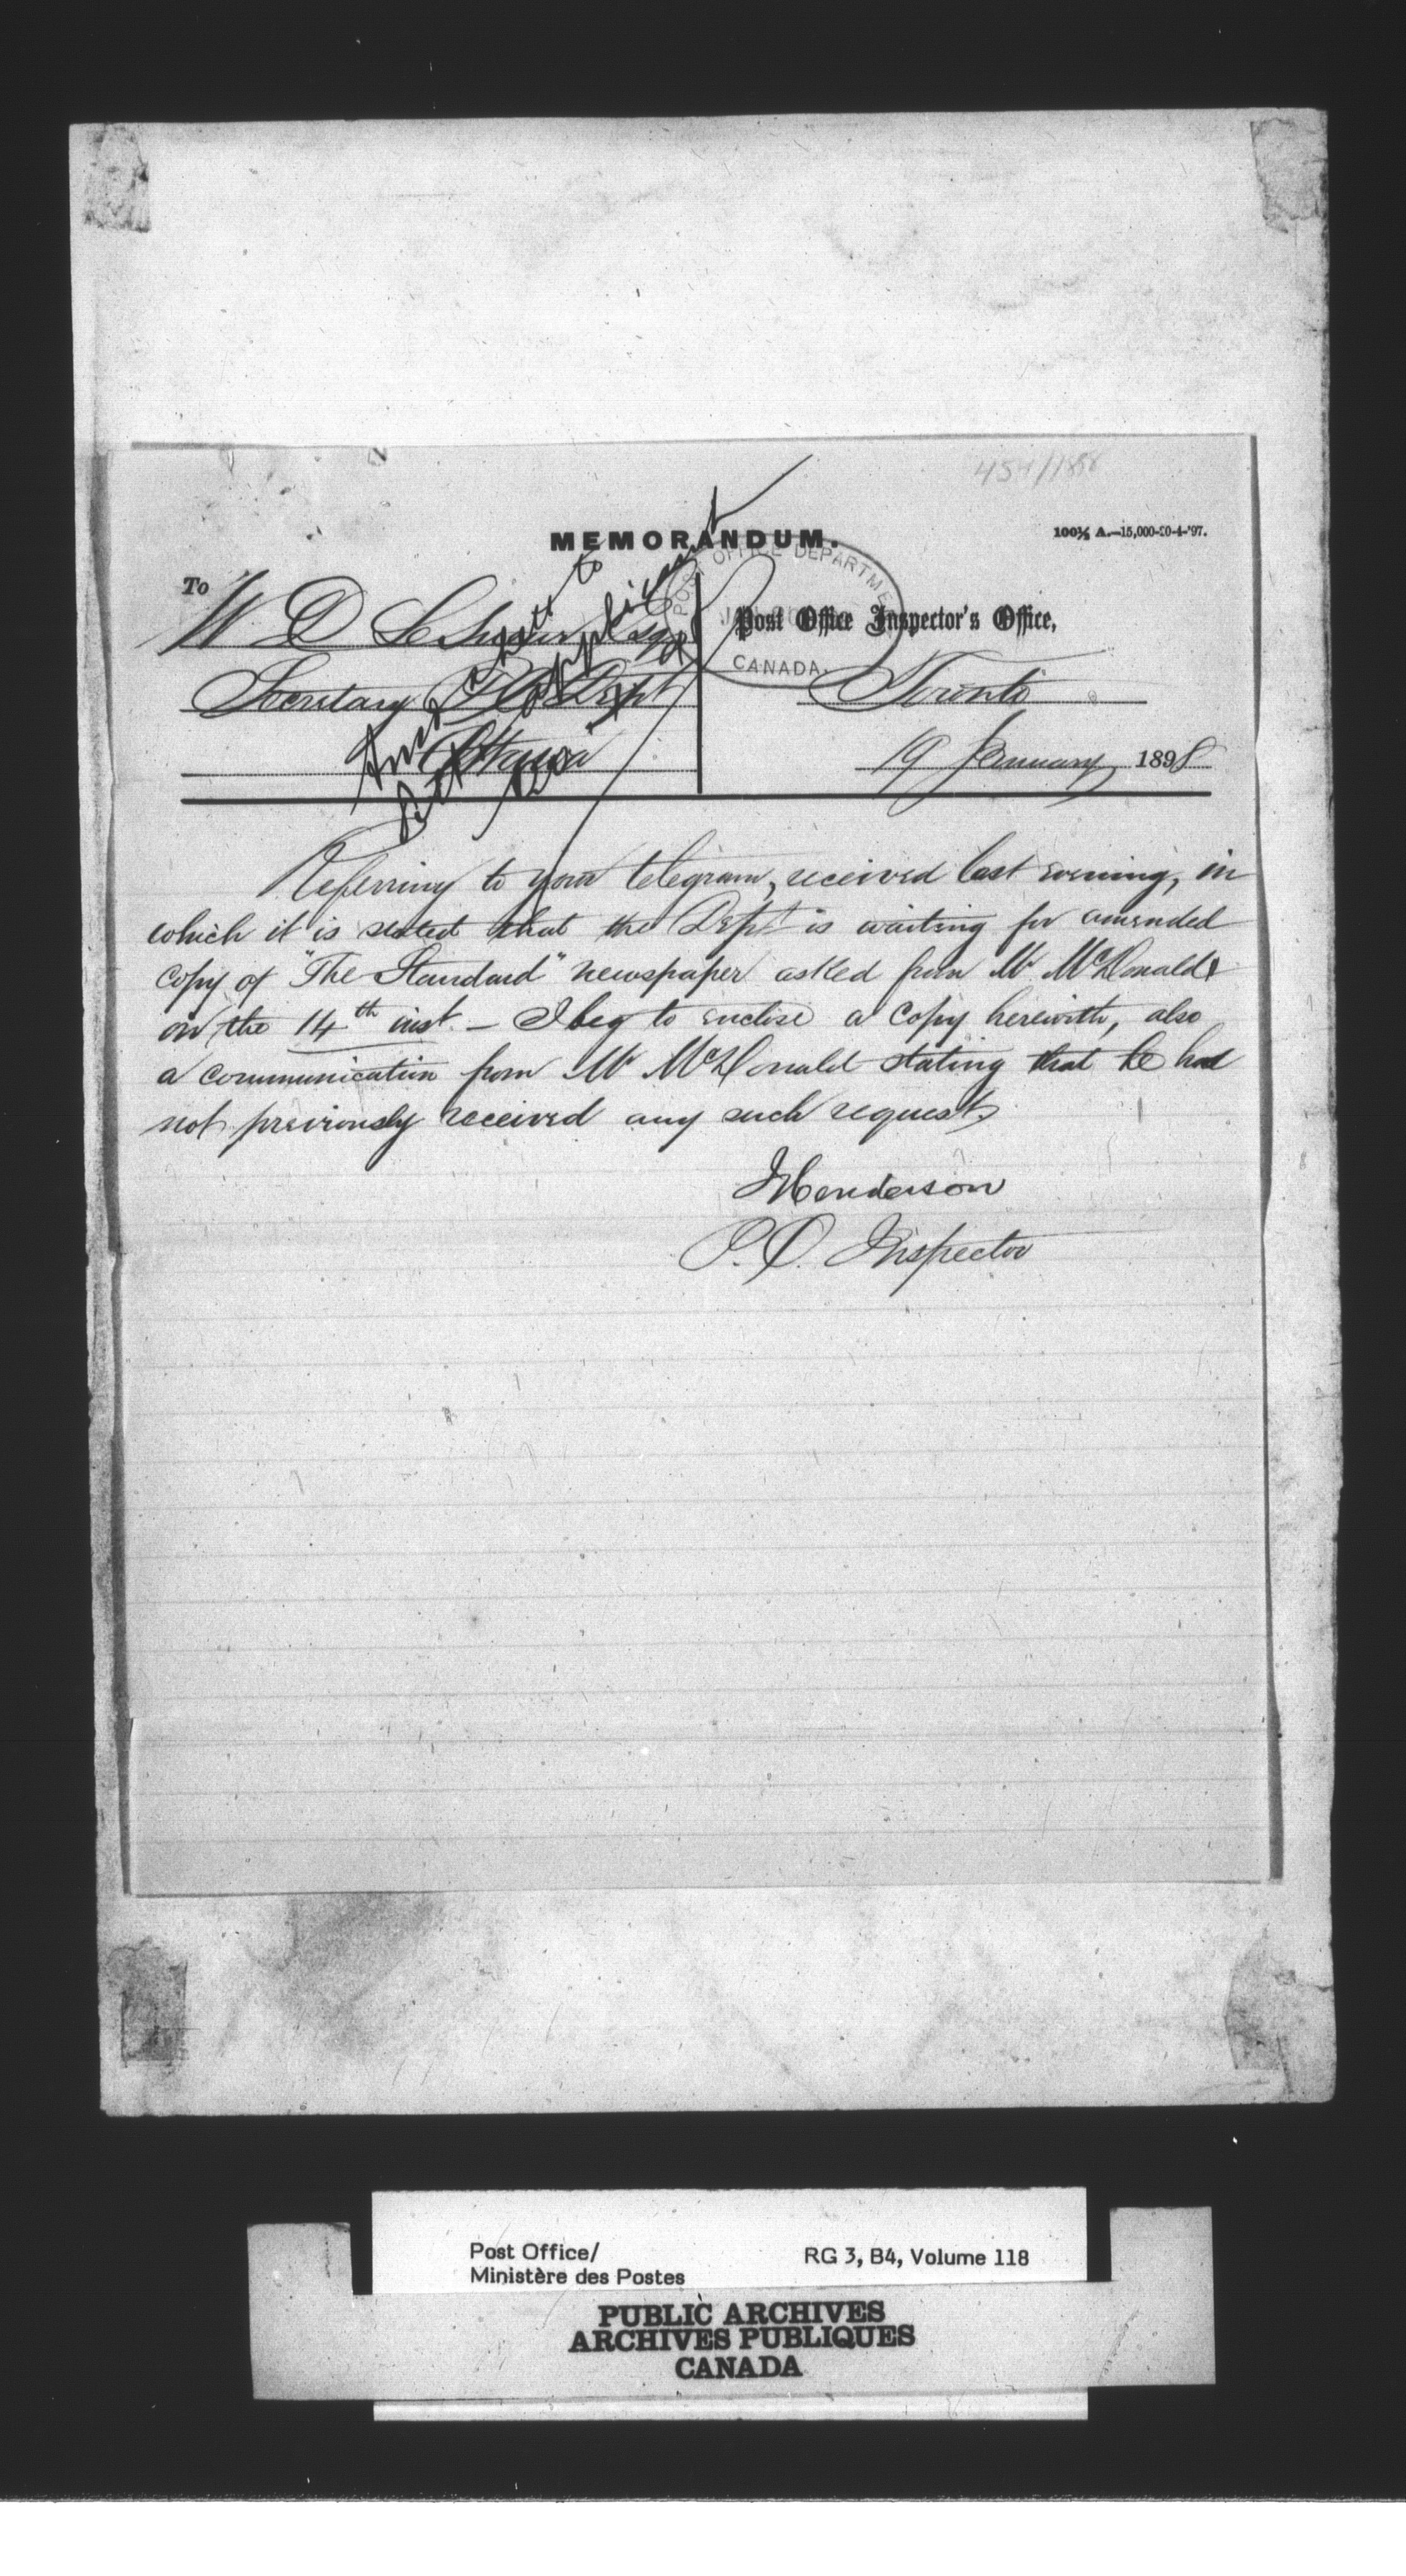 MEMORANDUM.
100½ A.—15,000-20-4-'97.
To
W D LeSueur Esq
Secretary P O Dept
Ottawa
POST OFFICE DEPARTME
CANADA.
Post Office Inspector's Office,
Toronto
19 January 1898
Referring to your telegram, received last evening, in
which it is stated that the Dept is waiting for amended
copy of "The Standard" newspaper asked from Mr McDonald
on the 14th inst. — I beg to enclose a copy herewith, also
a communication from Mr McDonald stating that he had
not previously received any such request.
JHenderson
P. O. Inspector
Post Office/
Ministère des Postes
RG 3, B4, Volume 118
PUBLIC ARCHIVES
ARCHIVES PUBLIQUES
CANADA